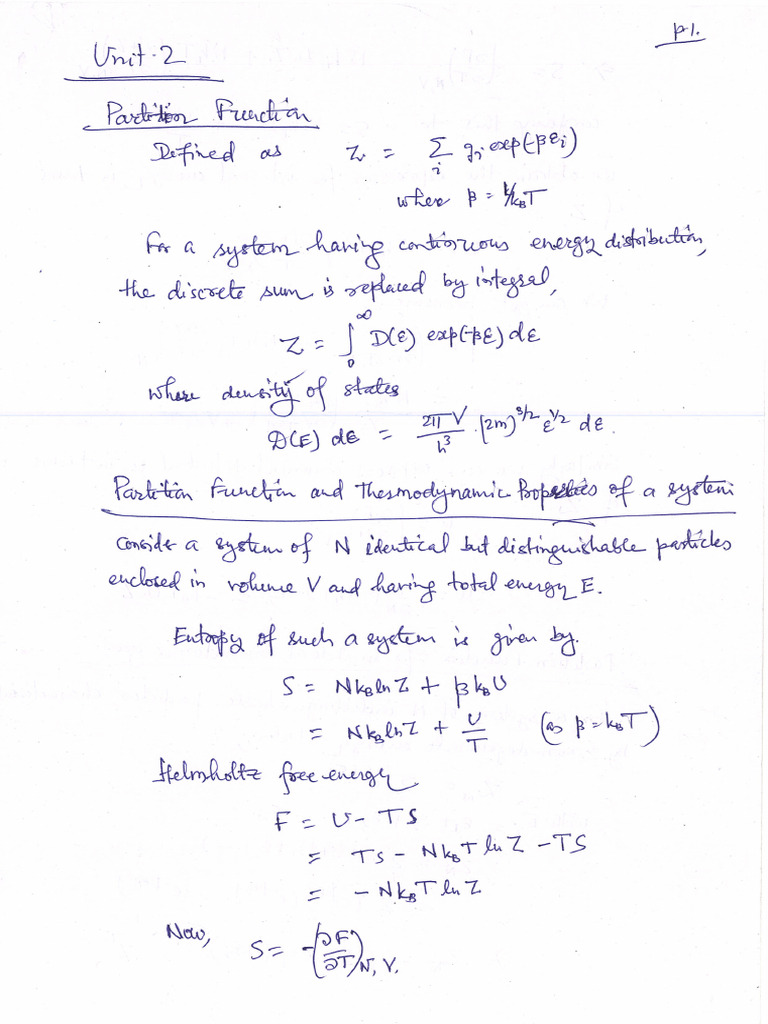 p1.
Unit-2
Partition Function
Defined as Z = Σ_i g_i exp(-βε_i)
where β = 1/k_BT
For a system having continuous energy distribution,
the discrete sum is replaced by integral,
Z = ∫_0^∞ D(ε) exp(-βε) dε
where density of states
D(ε) dε = 2πV/h^3 · (2m)^{3/2} ε^{1/2} dε.
Partition Function and Thermodynamic Properties of a system
Consider a system of N identical but distinguishable particles
enclosed in volume V and having total energy E.
Entropy of such a system is given by.
S = Nk_B ln Z + βk_B U
= Nk_B ln Z + U/T (as β = k_BT)
Helmholtz free energy
F = U - TS
= TS - Nk_BT ln Z - TS
= - Nk_BT ln Z
Now, S = -(∂F/∂T)_{N, V.}